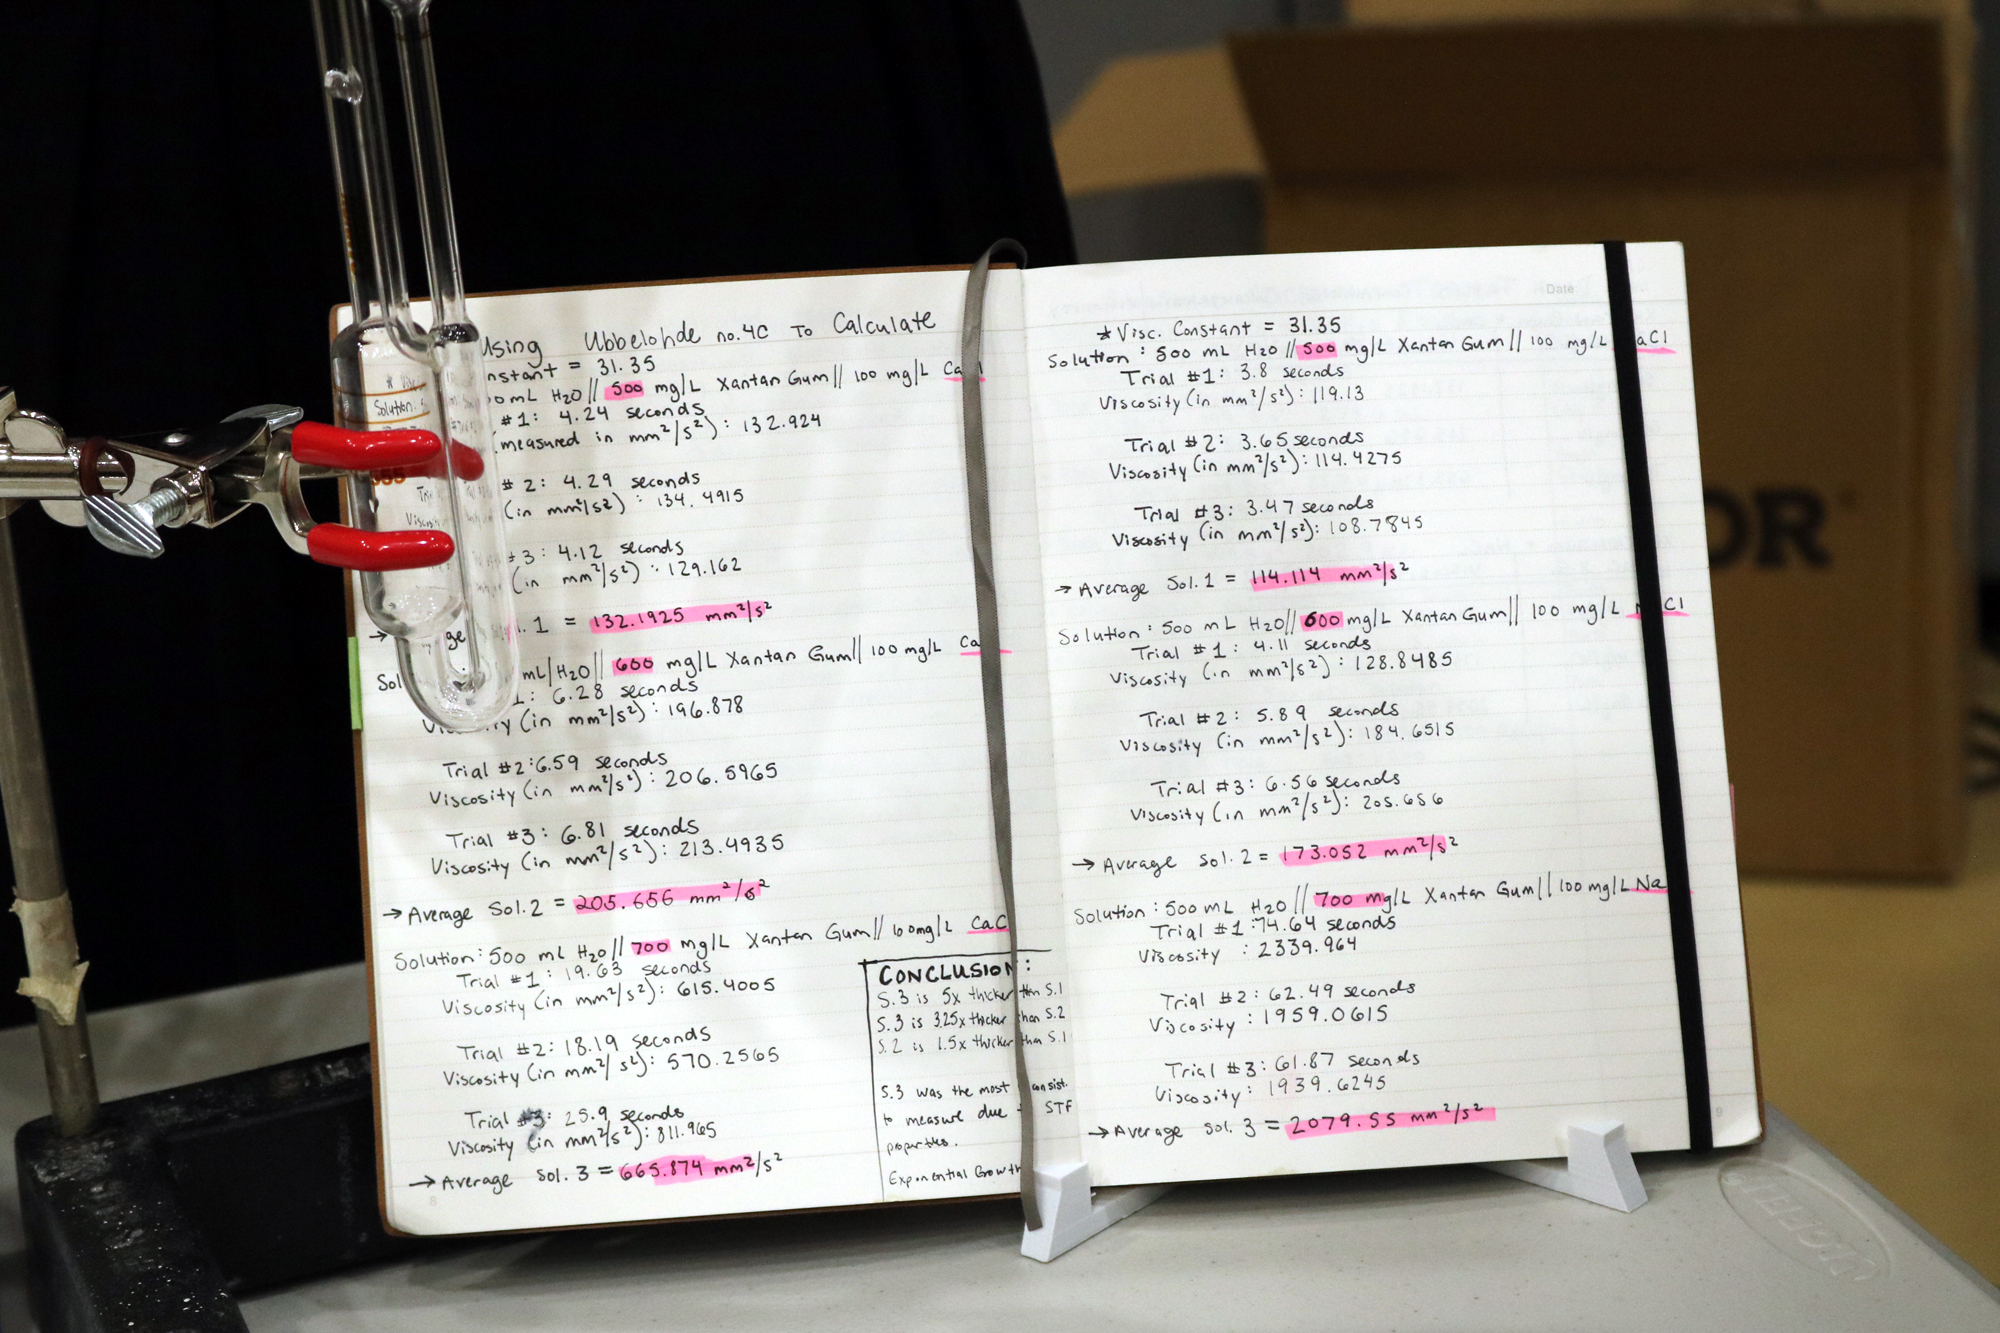 Using Ubbelohde no.4C To Calculate
nstant = 31.35
0 mL H2O // 500 mg/L Xantan Gum // 100 mg/L Ca
#1: 4.24 seconds
(measured in mm²/s²): 132.924
# 2: 4.29 seconds
(in mm²/s²) : 134.4915
#3: 4.12 seconds
(in mm²/s²) : 129.162
→ ge . 1 = 132.1925 mm²/s²
Sol mL/H2O// 600 mg/L Xantan Gum// 100 mg/L Ca
1: 6.28 seconds
(in mm²/s²) : 196.878
Trial #2: 6.59 seconds
Viscosity (in mm²/s²) : 206.5965
Trial #3: 6.81 seconds
Viscosity (in mm²/s²) : 213.4935
→ Average Sol.2 = 205.656 mm²/s²
Solution: 500 mL H2O // 700 mg/L Xantan Gum// 100mg/L CaC
Trial #1: 19.63 seconds
Viscosity (in mm²/s²): 615.4005
Trial #2: 18.19 seconds
Viscosity (in mm²/s²): 570.2565
Trial #3: 25.9 seconds
Viscosity (in mm²/s²): 811.965
→ Average Sol. 3 = 665.874 mm²/s²
8
CONCLUSION:
S.3 is 5x thicker than S.1
S.3 is 3.25x thicker than S.2
S.2 is 1.5x thicker than S.1
S.3 was the most consist.
to measure due STF
properties.
Exponential Growth
Date
* Visc. Constant = 31.35
Solution : 500 mL H2O // 500 mg/L Xantan Gum // 100 mg/L aCl
Trial #1: 3.8 seconds
Viscosity (in mm²/s²) : 119.13
Trial #2: 3.65 seconds
Viscosity (in mm²/s²) : 114.4275
Trial #3: 3.47 seconds
Viscosity (in mm²/s²): 108.7845
→ Average Sol. 1 = 114.114 mm²/s²
Solution : 500 mL H2O// 600 mg/L Xantan Gum// 100 mg/L N Cl
Trial #1: 4.11 seconds
Viscosity (in mm²/s²) : 128.8485
Trial #2: 5.89 seconds
Viscosity (in mm²/s²) : 184.6515
Trial #3: 6.56 seconds
Viscosity (in mm²/s²): 205.656
→ Average Sol. 2 = 173.052 mm²/s²
Solution : 500 mL H2O // 700 mg/L Xantan Gum// 100 mg/L Na
Trial #1: 74.64 seconds
Viscosity : 2339.964
Trial #2: 62.49 seconds
Viscosity : 1959.0615
Trial #3: 61.87 seconds
Viscosity : 1939.6245
→ Average Sol. 3 = 2079.55 mm²/s²
9
OR
LIFETIME